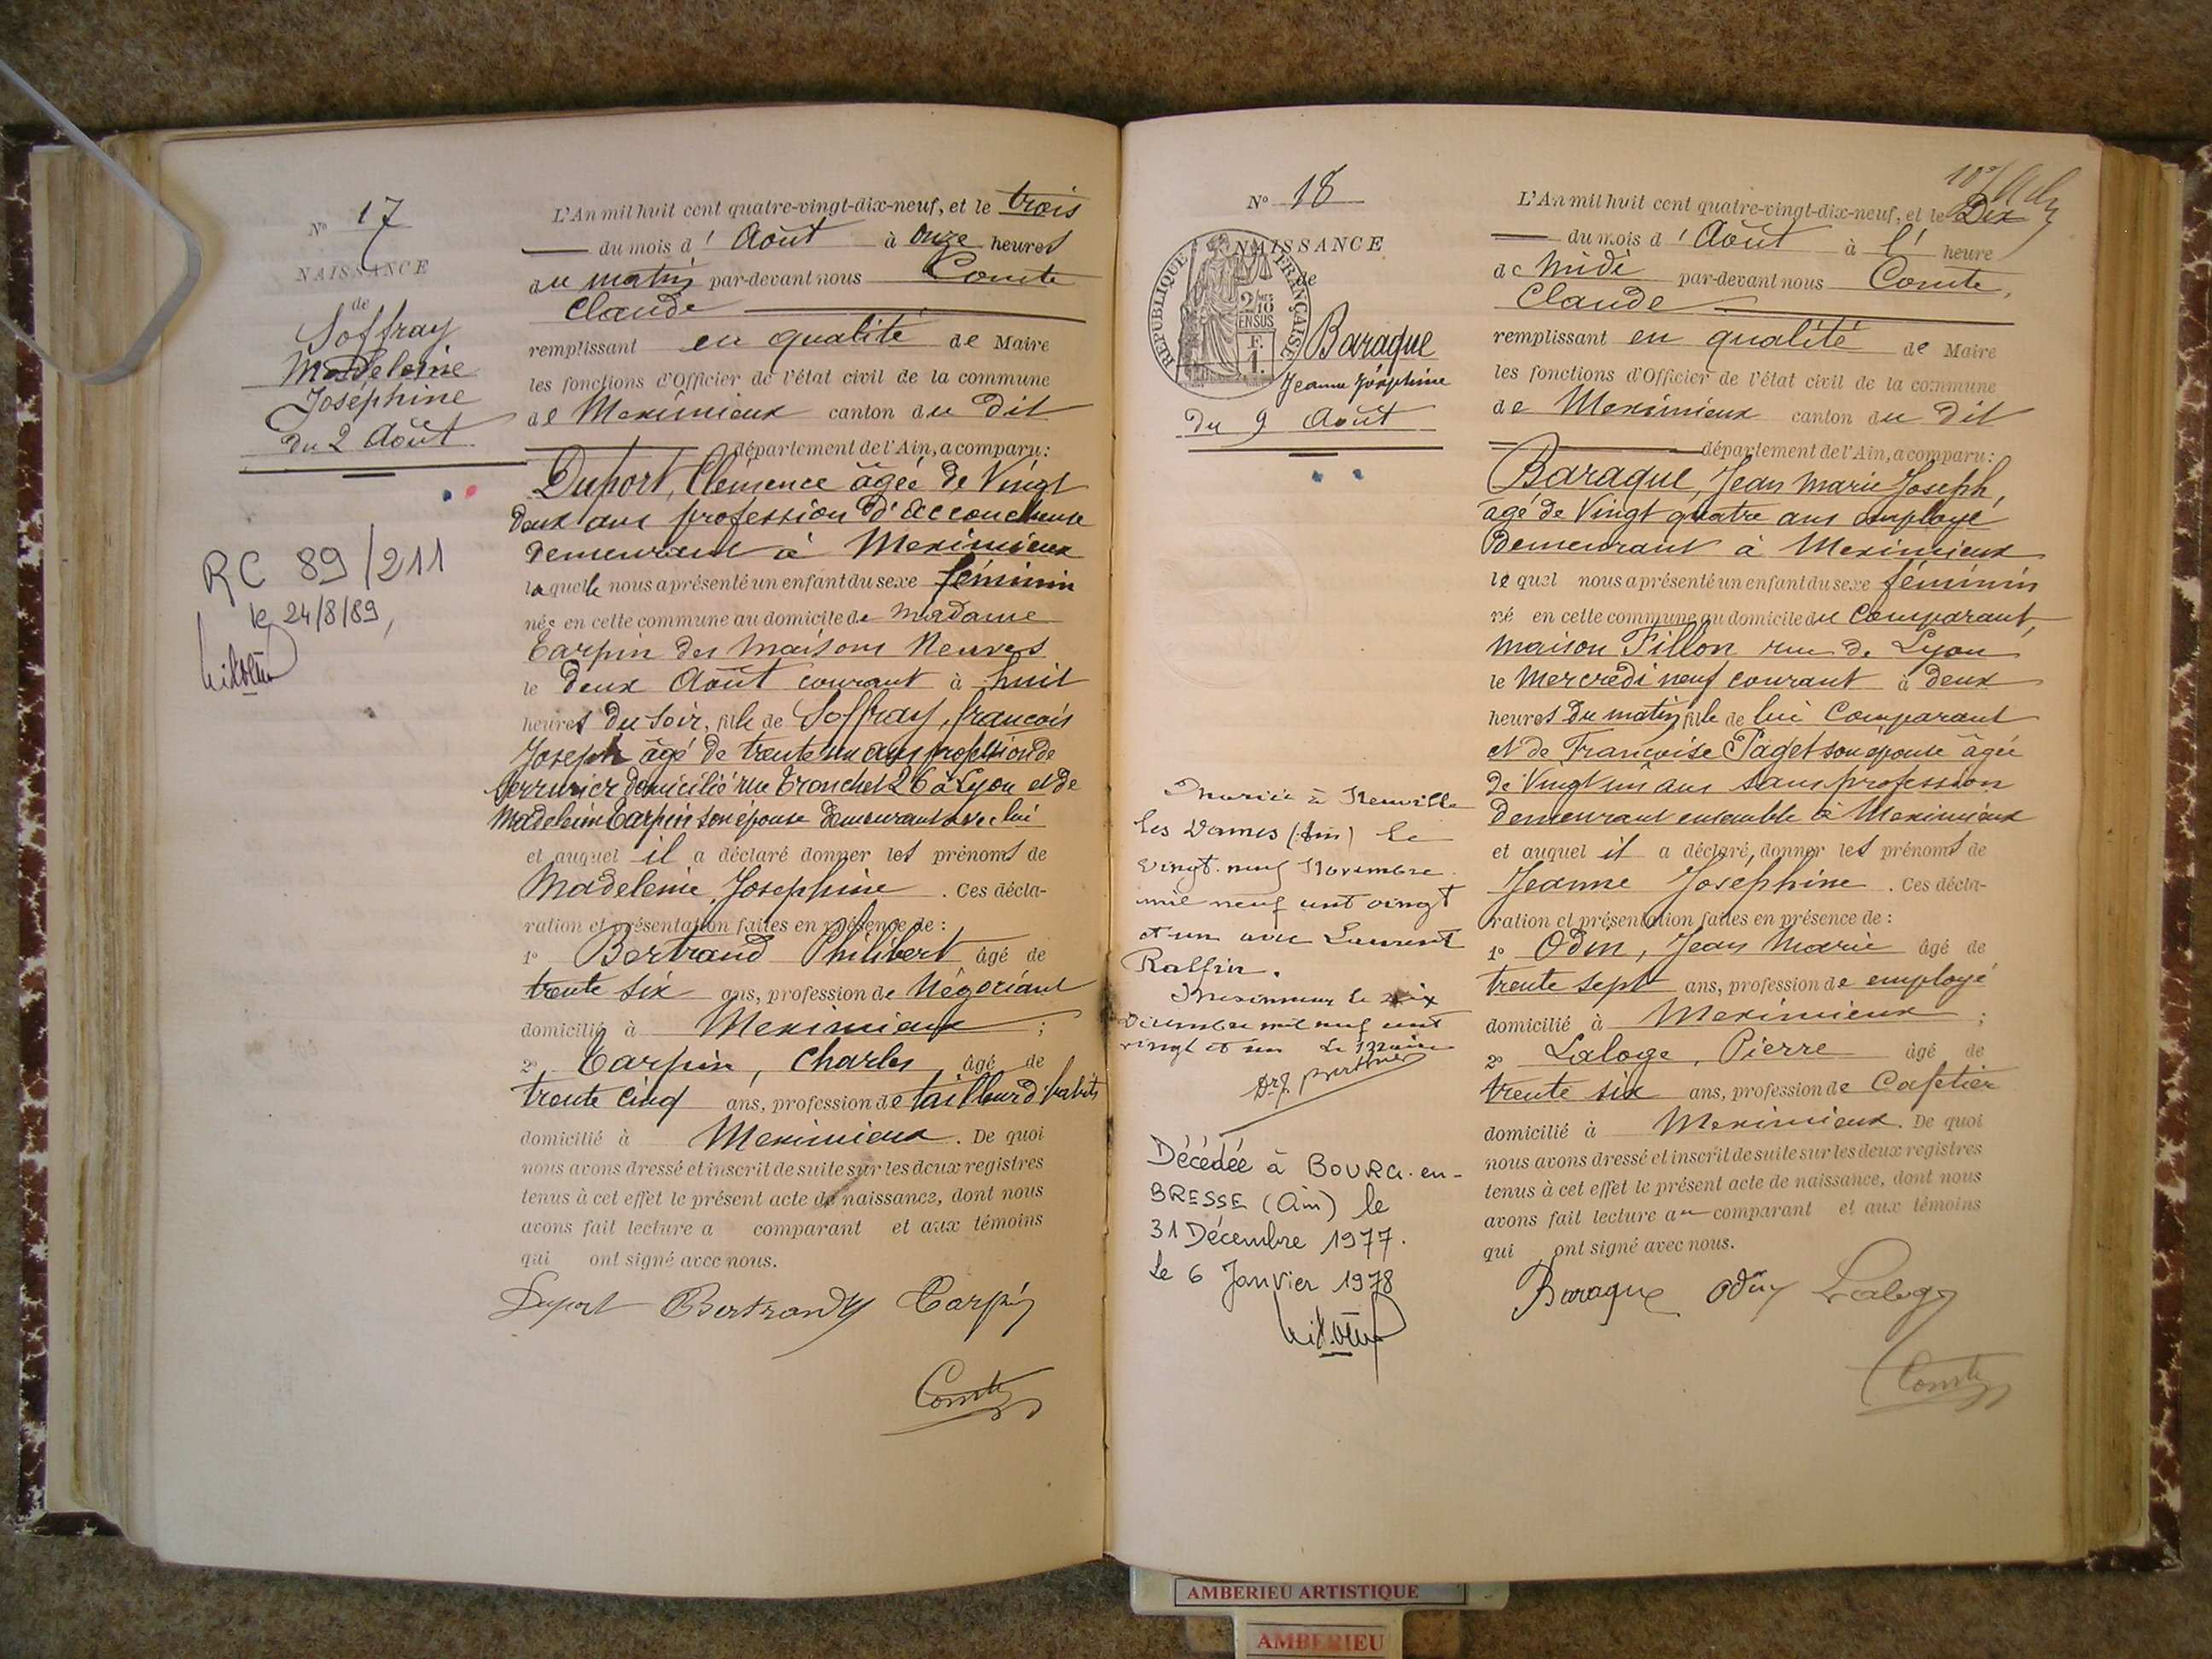 N° 17
NAISSANCE
de
Soffray
Madeleine
Joséphine
du 2 Août
RC 89/211
le 24/8/89,
L'An mil huit cent quatre-vingt-dix-neuf, et le trois
du mois d' Août à onze heures
du matin par-devant nous Comte
Claude
remplissant en qualité de Maire
les fonctions d'Officier de l'état civil de la commune
de Meximieux canton du dit
département de l'Ain, a comparu:
Duport, Clémence âgée de Vingt
deux ans profession d'accoucheuse
demeurant à Meximieux
laquelle nous a présenté un enfant du sexe féminin
née en cette commune au domicile de Madame
Carpin des Maisons Neuves
le deux Août courant à huit
heures du soir, fille de Soffray, françois
Joseph âgé de trente un ans profession de
Serrurier domicilié rue Tronchet 26 à Lyon et de
Madeleine Carpin son épouse demeurant avec lui
et auquel il a déclaré donner les prénoms de
Madeleine, Joséphine. Ces décla-
ration et présentation faites en présence de :
1° Bertrand Philibert âgé de
trente six ans, profession de Négociant
domicilié à Meximieux ;
2° Carpin, Charles âgé de
trente cinq ans, profession de tailleur d'habits
domicilié à Meximieux. De quoi
nous avons dressé et inscrit de suite sur les deux registres
tenus à cet effet le présent acte de naissance, dont nous
avons fait lecture a comparant et aux témoins
qui ont signé avec nous.
Duport Bertrand Carpin
Comte
N° 18
NAISSANCE
de
REPUBLIQUE FRANÇAISE
2/10 EN SUS
F.
1.
Baraque
Jeanne Joséphine
du 9 Août
Mariée à Neuville
les Dames (Ain) le
vingt-neuf Novembre
mil neuf cent vingt
et un avec Laurent
Ralfin.
Meximieux le dix
décembre mil neuf cent
vingt et un Le Maire
Décédée à BOURG-en-
BRESSE (Ain) le
31 Décembre 1977.
Le 6 Janvier 1978
L'An mil huit cent quatre-vingt-dix-neuf, et le Dix
du mois d' Août à l' heure
de midi par-devant nous Comte,
Claude
remplissant en qualité de Maire
les fonctions d'Officier de l'état civil de la commune
de Meximieux canton du dit
département de l'Ain, a comparu:
Baraque, Jean Marie Joseph,
âgé de Vingt quatre ans employé
demeurant à Meximieux
lequel nous a présenté un enfant du sexe féminin
né en cette commune au domicile du Comparant,
maison Fillon rue de Lyon
le Mercredi neuf courant à deux
heures du matin fille de lui Comparant
et de Françoise Paget son épouse âgée
de Vingt un ans sans profession
demeurant ensemble à Meximieux
et auquel il a déclaré donner les prénoms de
Jeanne Josephine. Ces décla-
ration et présentation faites en présence de :
1° Odin, Jean Marie âgé de
trente sept ans, profession de employé
domicilié à Meximieux ;
2° Laloge, Pierre âgé de
trente six ans, profession de Cafetier
domicilié à Meximieux. De quoi
nous avons dressé et inscrit de suite sur les deux registres
tenus à cet effet le présent acte de naissance, dont nous
avons fait lecture au comparant et aux témoins
qui ont signé avec nous.
Baraque Odin Laloge
Comte
AMBERIEU ARTISTIQUE
AMBERIEU